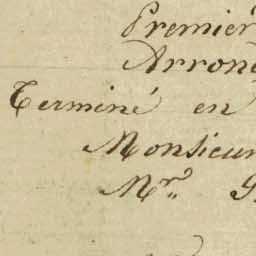 Premier
Arrond
Terminé en
Monsieur
Mr.